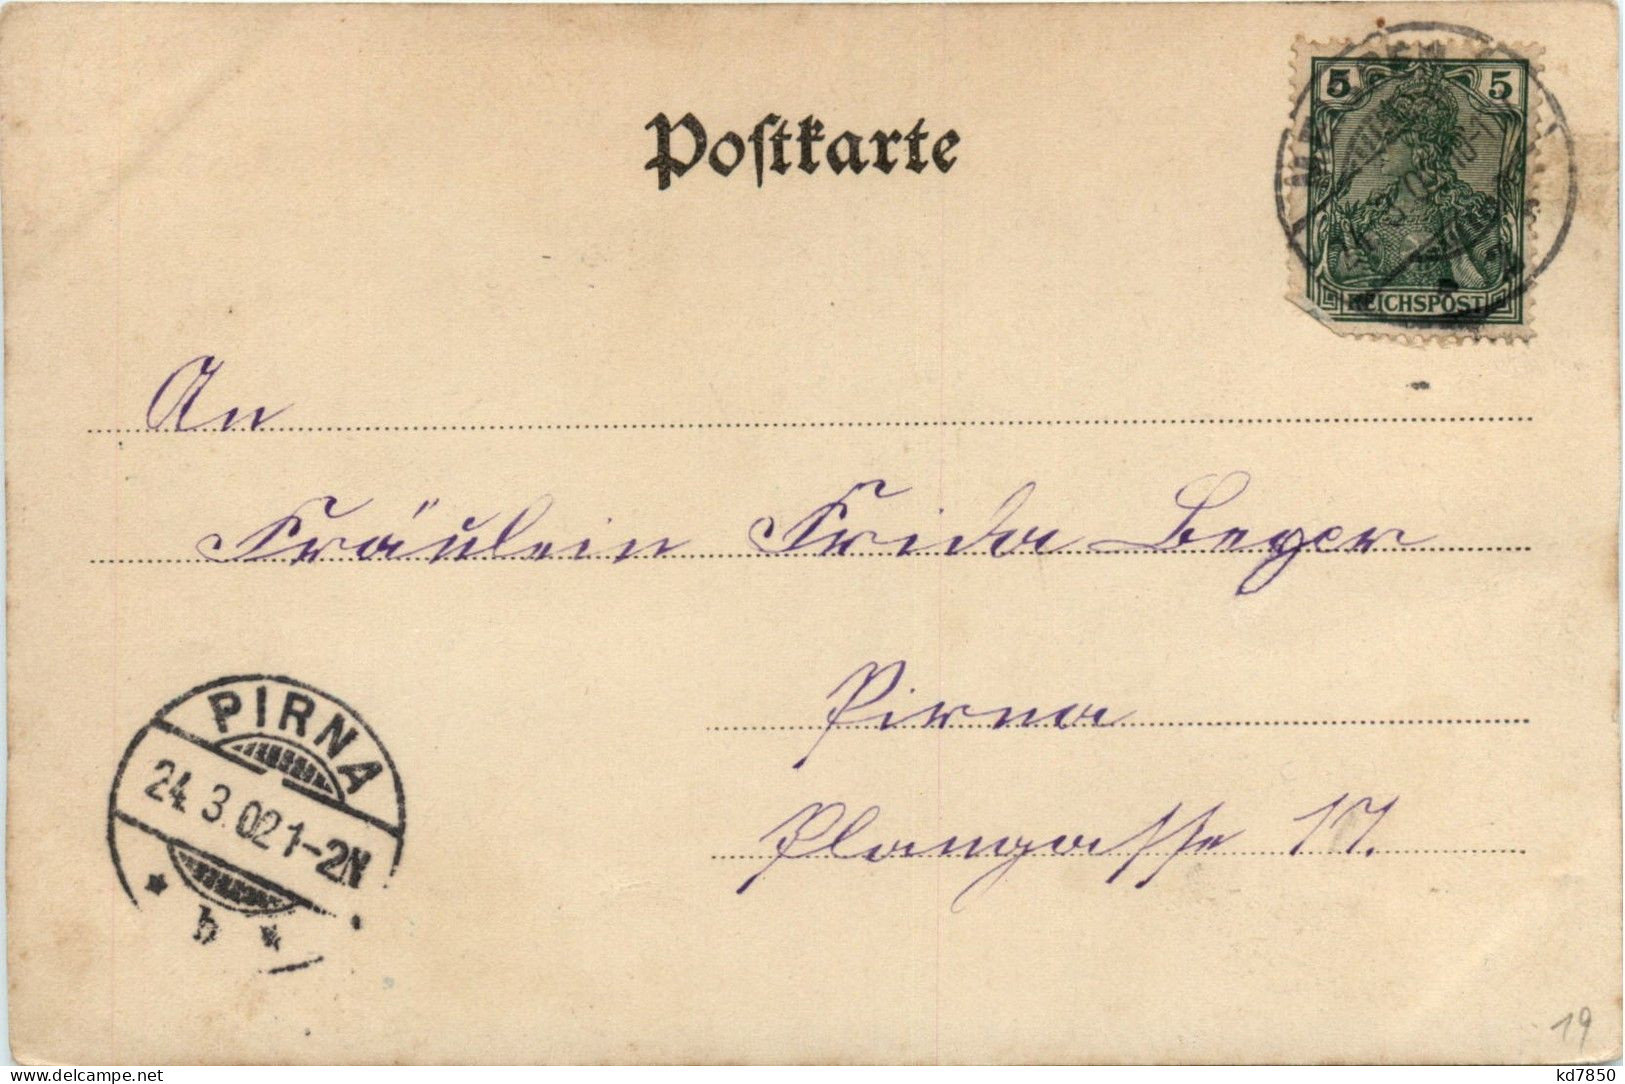 Postkarte
5 5
24.3.02
REICHSPOST
An
Fräulein Frida Beger
Pirna
Plangasse 17.
PIRNA
24.3.02 1-2N
b
19
kd7850